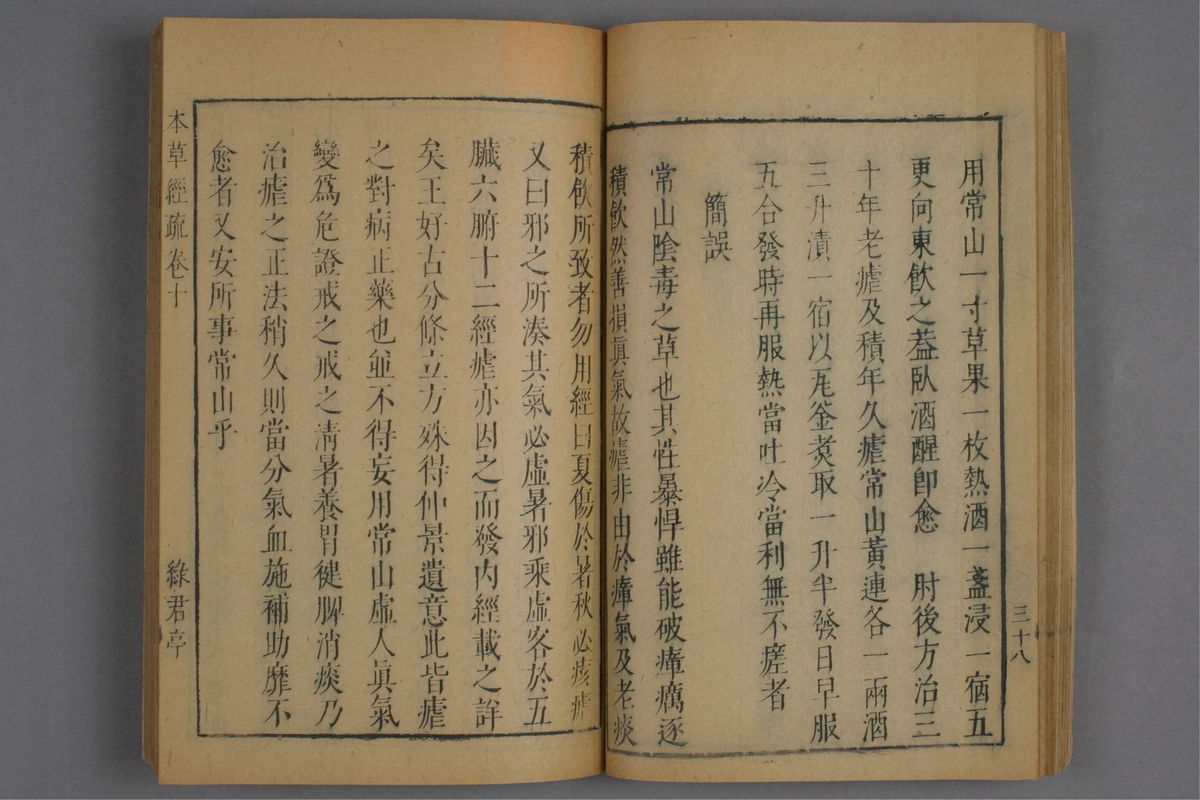 用常山一寸草果一枚熱酒一盞浸一宿五
更向東飲之蓋臥酒醒卽愈　肘後方治三
十年老瘧及積年久瘧常山黃連各一兩酒
三升漬一宿以瓦釜煑取一升半發日早服
五合發時再服熱當吐冷當利無不瘥者
簡誤
常山陰毒之草也其性暴悍雖能破瘴癘逐
積飲然善損眞氣故瘧非由於瘴氣及老痰
三十八
積飲所致者勿用經曰夏傷於暑秋必痎瘧
又曰邪之所湊其氣必虛暑邪乘虛客於五
臟六腑十二經瘧亦因之而發內經載之詳
矣王好古分條立方殊得仲景遺意此皆瘧
之對病正藥也並不得妄用常山虛人眞氣
變爲危證戒之戒之清暑養胃健脾消痰乃
治瘧之正法稍久則當分氣血施補助靡不
愈者又安所事常山乎
本草經疏卷十
綠君亭